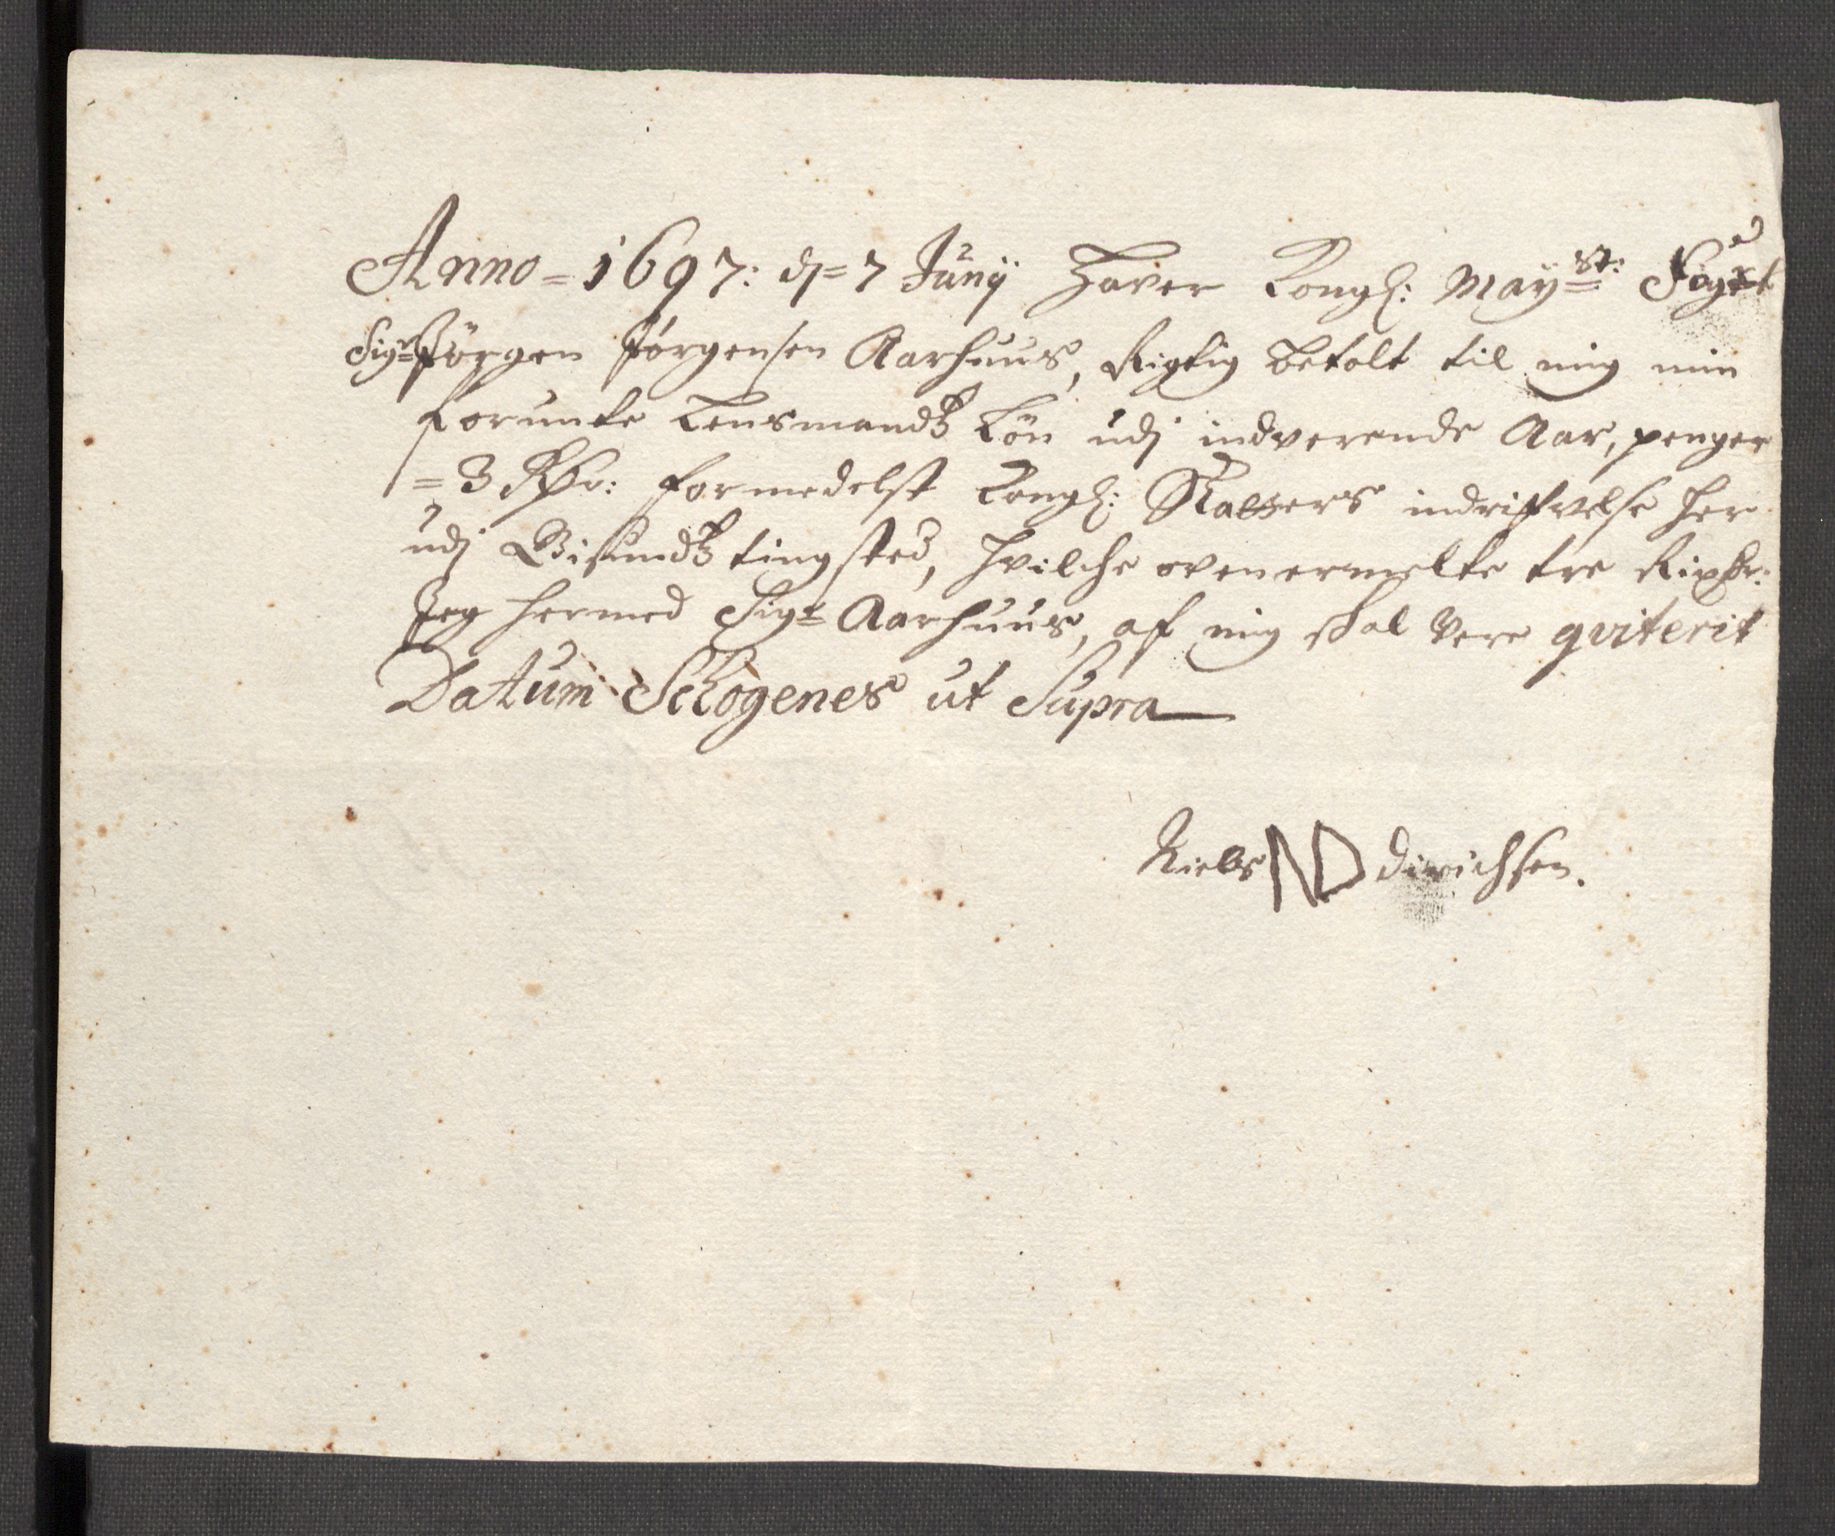 Anno = 1697: d = 7 Junij Haver Kongl: May=st: Foget
Sigr Jörgen Jörgensen Aarhuus, Rigtig betalt til mig min
forunte Lensmandtz Lön udj indverende Aar, penger
= 3 Rdr: formedelst Kongl: Skatters indrifvelse her
udj Gisundtz tingsted, hvilche ovenermelte tre Rixdr:
Jeg hermed Sigr Aarhuus, af mig skal Vere qviterit
Datum Schogenes ut Supra
Niels ND Dirichsen.